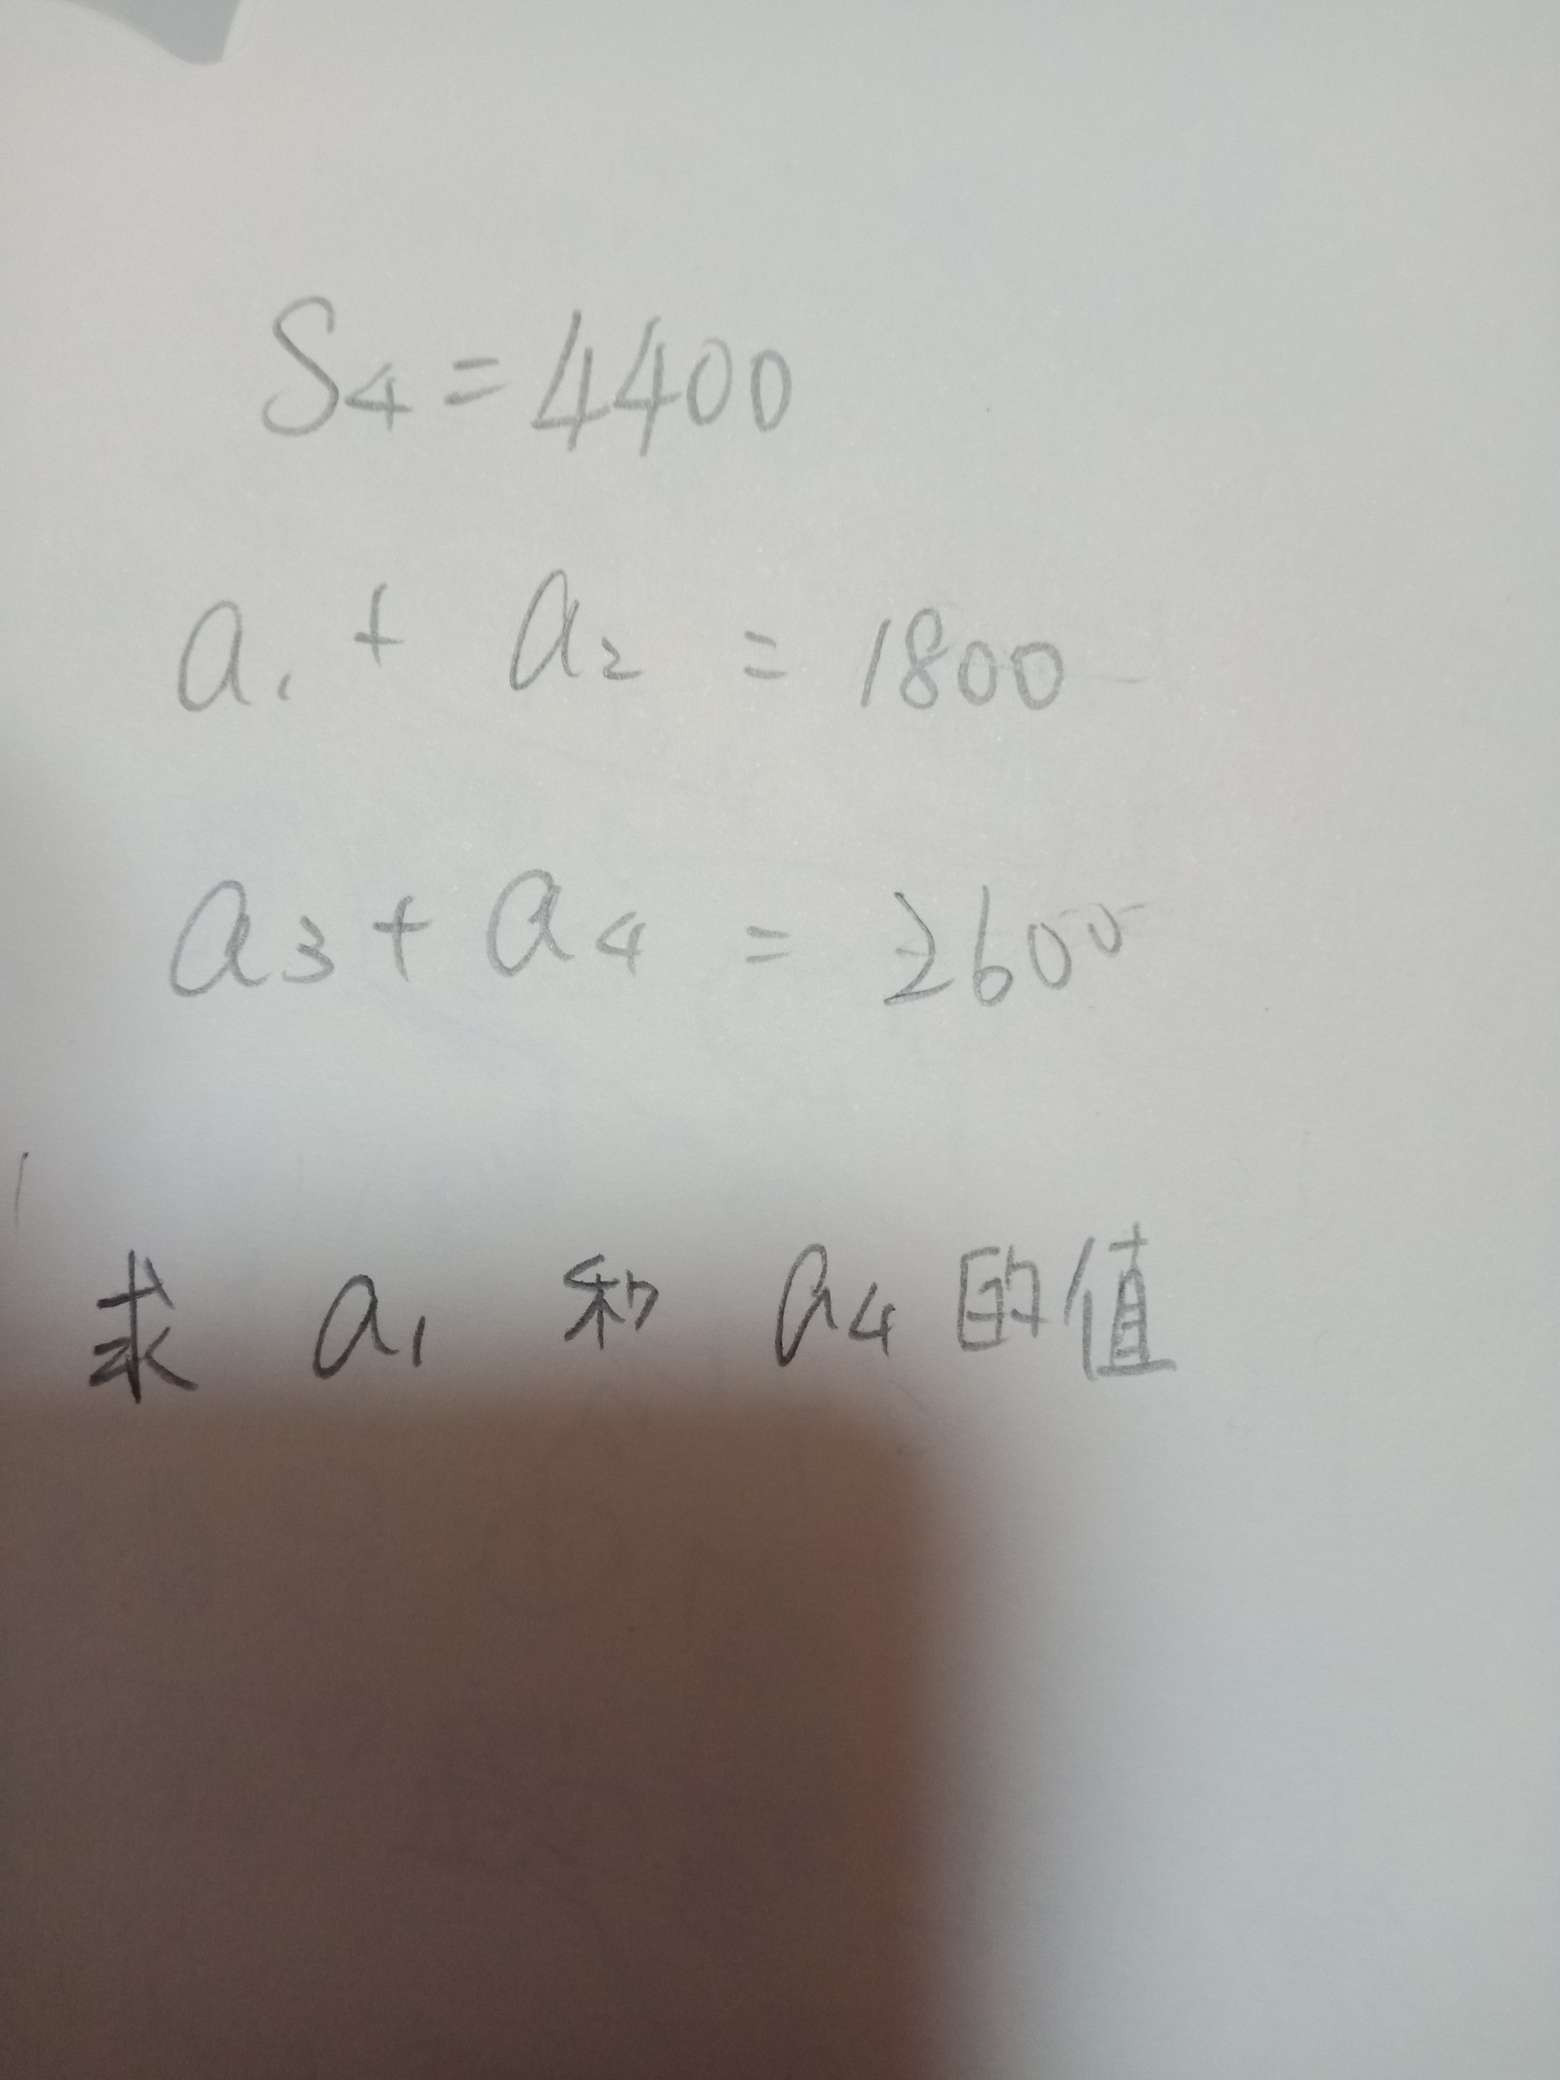 S₄=4400
a₁+a₂=1800
a₃+a₄=2600
求a₁和a₄的值